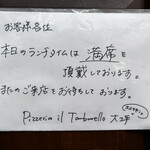 お客様各位
本日のランチタイムは 満席を
頂戴しております。
またのご来店をお待ちしております。
Pizzeria il Tamburello